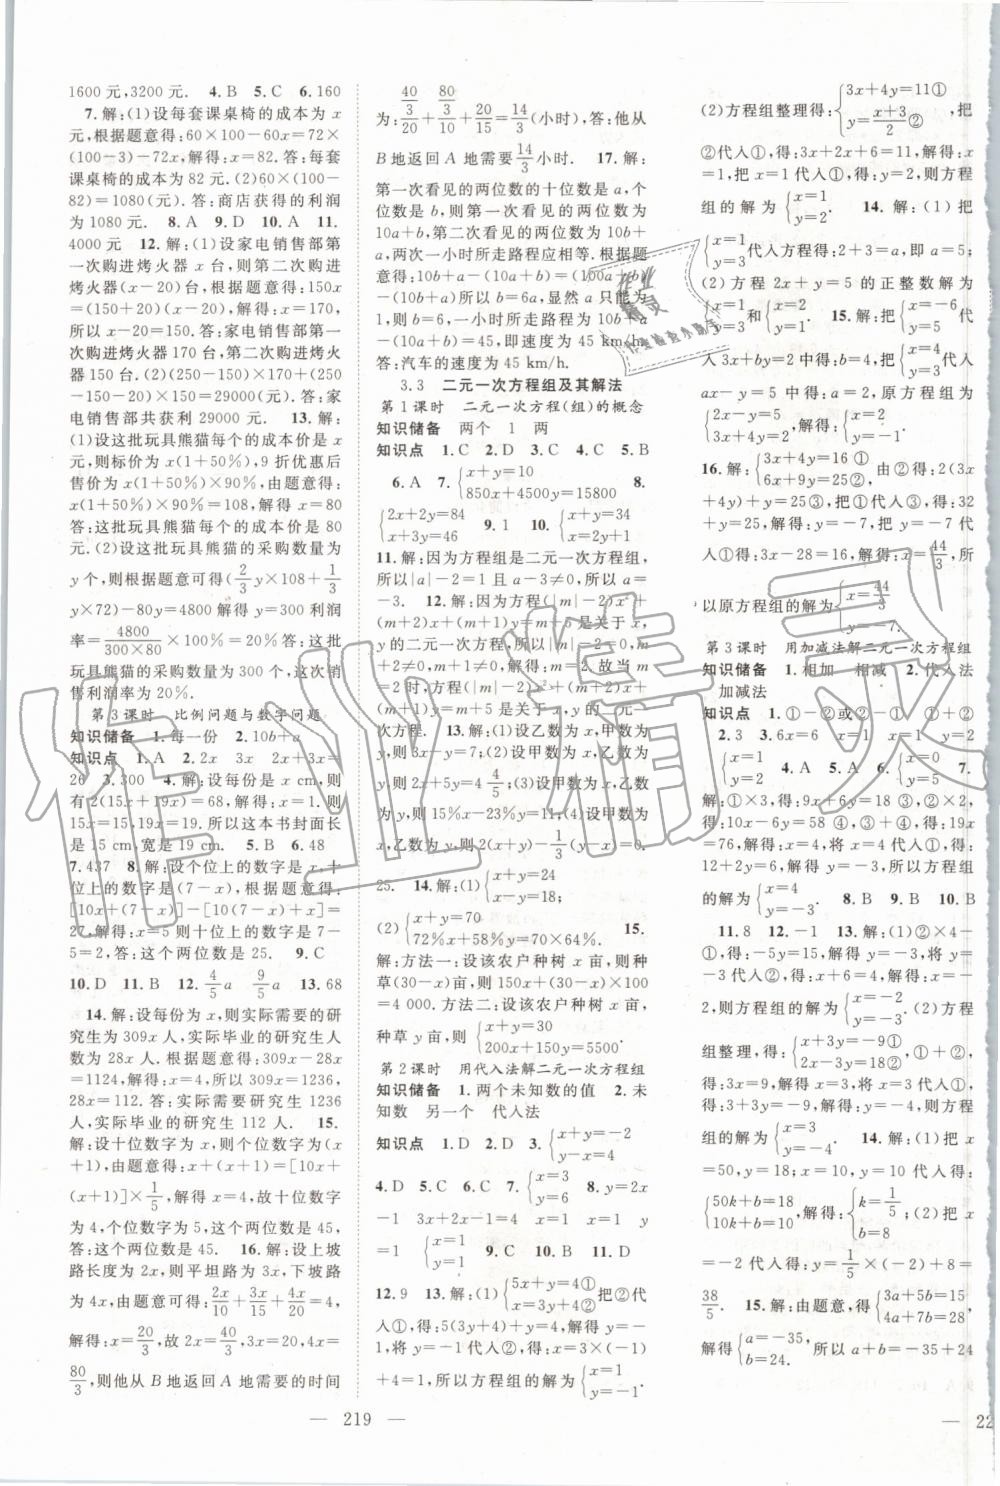 1600 元,3200 元. 4. B 5. C 6. 160
7. 解:(1)设每套课桌椅的成本为 x
元,根据题意得:60×100-60x=72×
(100-3)-72x,解得:x=82. 答:每套
课桌椅的成本为 82 元. (2)60×(100-
82)=1080(元). 答:商店获得的利润
为 1080 元. 8. A 9. D 10. A 11.
4000 元 12. 解:(1)设家电销售部第
一次购进烤火器 x 台,则第二次购进
烤火器(x-20)台,根据题意得:150x
=(150+20)(x-20),解得:x=170,
所以 x-20=150. 答:家电销售部第一
次购进烤火器 170 台,第二次购进烤火器
150 台. (2)(250-150)×170+(250
-150-20)×150=29000(元),答:家
电销售部共获利 29000 元. 13. 解:
(1)设这批玩具熊猫每个的成本价是 x
元,则标价为 x(1+50%),9 折销售后
售价为 x(1+50%)×90%,由题意得:
x(1+50%)×90%=108,解得 x=80
答:这批玩具熊猫每个的成本价是 80
元. (2)设这批玩具熊猫的采购数量为
y 个,则根据题意可得(2/3 y×108+1/3
y×72)-80y=4800 解得 y=300 利润
率=4800/(300×80)×100%=20%. 答:这批
玩具熊猫的采购数量为 300 个,这次销
售利润率为 20%.
第 3 课时 比例问题与数字问题
知识储备 1. 每一份 2. 10b+a
知识点 1. A 2. 2x 3x 2x+3x=
26 3. 300 4. 解:设每份是 x cm,则
有 2(15x+19x)=68,解得:x=1.
15x=15,19x=19. 所以这本书封面长
是 15 cm,宽是 19 cm. 5. B 6. 48
7. 437 8. 解:设个位上的数字是 x,十
位上的数字是(7-x),根据题意得:
[10x+(7-x)]-[10(7-x)+x]=
27,解得:x=5 则十位上的数字是 7-
5=2,答:这个两位数是 25. 9. C
10. D 11. B 12. 4/5 a 9/5 a 13. 68
14. 解:设每份为 x,则实际需要的研
究生为 309x 人,实际毕业的研究生人
数为 28x 人. 根据题意得:309x-28x=
1124,解得:x=4,309x=1236,
28x=112,答:实际需要研究生 1236
人,实际毕业的研究生 112 人. 15.
解:设十位数字为 x,则个位数字为(x
+1),由题意得:x+(x+1)=[10x+
(x+1)]×1/5,解得 x=4,故十位数字
为 4,个位数字为 5,这个两位数是 45,
答:这个两位数是 45. 16. 解:设上坡
路长度为 2x,则平坦路为 3x,下坡路
为 4x,由题意可得:2x/10+3x/15+4x/20=14/3,
解得:x=20/3,故 2x=40/3,3x=20,4x=
80/3,则他从 B 地返回 A 地需要的时间
为:(40/3)/20+(80/3)/10+20/15=14/3(小时),答:他从
B 地返回 A 地需要14/3小时. 17. 解:
第一次看见的两位数的十位数是 a,个
位数是 b,则第一次看见的两位数为
10a+b,第二次看见的两位数为 10b+
a,两次一小时所走路程应相等. 根据题
意得:10b+a-(10a+b)=(100a+b)
-(10b+a)所以 b=6a,显然 a 只能为
1,则 b=6,一小时所走路程为(10b+
a)-(10a+b)=45,即速度为 45 km/h.
答:汽车的速度为 45 km/h.
3.3 二元一次方程组及其解法
第 1 课时 二元一次方程(组)的概念
知识储备 两个 1 两
知识点 1. C 2. D 3. C 4. C 5. B
6. A 7. {x+y=10 850x+4500y=15800 8.
{2x+2y=84 x+3y=46 9. 1 10. {x+y=34 x=2y+1
11. 解:因为方程组是二元一次方程组,
所以|a|-2=1 且 a-3≠0,所以 a=
-3. 12. 解:因为方程(|m|-2)x²+
(m+2)x+(m+1)y=m+5 是关于 x,y
的二元一次方程,所以|m|-2=0,
m+2≠0,m+1≠0. 解得:m=2. 故当 m
=2 时,方程(|m|-2)x²+(m+2)x+
(m+1)y=m+5 是关于 x,y 的二元一
次方程. 13. 解:(1)设乙数为 x,甲数为
y,则 3x-2y=7;(2)设甲数为 x,乙数为
y,则 2x+5y=4 4/5;(3)设甲数为 x,乙数
为 y,则 15%x-23%y=11;(4)设甲数为
x,乙数为 y,则 2(x+y)-1/3(y-x)=
25. 14. 解:(1){x+y=24 y-x=18;
(2){x+y=70 72%x+58%y=70×64%. 15.
解:方法一:设该农户种树 x 亩,则种
草(30-x)亩,则 150x+(30-x)×100
=4000. 方法二:设该农户种树 x 亩,
种草 y 亩,则 {x+y=30 200x+150y=5500.
第 2 课时 用代入法解二元一次方程组
知识储备 1. 两个未知数的值 2. 未
知数 另一个 代入法
知识点 1. D 2. D 3. {x+y=-2 y-x=4
4. D 5. C 6. C 7. {x=3 y=6 8. y=2x
-1 3x+2x-1=4 x=1 x=1 y
=1 {x=1 y=1 9. C 10. C 11. D
12. 9 13. 解:(1){5x+y=4① x+3y=4② 把②代
人①,得:5(3y+4)+y=4,解得:y=
-1. 把 y=-1 代人②,得:x=3×(-1)
+4=1,所以方程组的解为{x=1 y=-1.
(2)方程组整理得:{3x+4y=11① y=(x+3)/2② ,把
②代入①,得:3x+2x+6=11,解得:x
=1,把 x=1 代入②,得:y=2,则方程
组的解为 {x=1 y=2. 14. 解:(1)把
{x=1 y=3 代入方程得:2+3=a,即 a=5;
(2)方程 2x+y=5 的正整数解为
{x=1 y=3 和{x=2 y=1. 15. 解:把{x=-6 y=5 代
入 3x+by=2 中得:b=4,把{x=4 y=3 代入
ax-5y=-7 中得:a=2,原方程组为
{2x-5y=-7 3x+4y=2,解得:{x=2 y=-1.
16. 解:{3x+4y=16 ① 6x+9y=25② 由②得:2(3x
+4y)+y=25③,把①代入③,得:32
+y=25,解得:y=-7,把 y=-7 代
入①得:3x-28=16,解得:x=44/3,所
以原方程组的解为{x=44/3 y=-7.
第 3 课时 用加减法解二元一次方程组
知识储备 1. 相加 相减 2. 代入法
加减法
知识点 1. ①-②或②-① ①+②
2. 3 3. 6x=6 x=1 x=1 y=2
{x=1 y=2 4. A 5. A 6. {x=0 y=5 7.
解:①×3,得:9x+6y=18 ③,②×2,
得:10x-6y=58 ④,③+④,得:19x
=76,解得:x=4,将 x=4 代入①,得:
12+2y=6,解得:y=-3. 所以方程组
的解为{x=4 y=-3. 8. B 9. B 10. B
11. 8 12. -1 13. 解:(1)②×4-
①,得:-5y=15,解得 y=-3,将 y=
-3 代入②,得:x-3=-5,解得 x=-
2,则方程组的解为{x=-2 y=-3. (2)方程
组整理,得:{3x+4y=-9① 2x-3y=18② ,
组的解为{x=3 y=-4. 14. 解:(1)把 x
=10,y=10 和 x=50,y=18 代入得:
{50k+b=18 10k+b=10,解得:{k=1/5 b=8;(2)把 x
=-2 代入得:y=1/5×(-2)+8=
38/5. 15. 解:由题意,得{3a+5b=15, 4a+7b=28.
解得{a=-35, b=24. 所以 a+b=-35+24
— 219 —
作业精灵